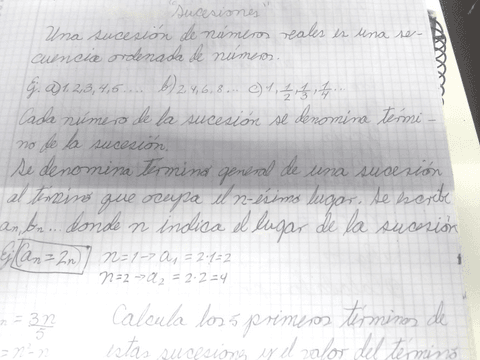 "Sucesiones"
Una sucesión de números reales es una se-
cuencia ordenada de números.
Ej. a) 1, 2, 3, 4, 5.... b) 2, 4, 6, 8... c) 1, 1/2, 1/3, 1/4...
Cada número de la sucesión se denomina térmi-
no de la sucesión.
Se denomina término general de una sucesión
al término que ocupa el n-ésimo lugar. Se escribe
an, bn... donde n indica el lugar de la sucesión
Ej (an = 2n) n=1→a1 = 2·1=2
n=2→a2 = 2·2=4
n = 3n/5 Calcula los 5 primeros términos de
= n²-n estas sucesiones y el valor del término